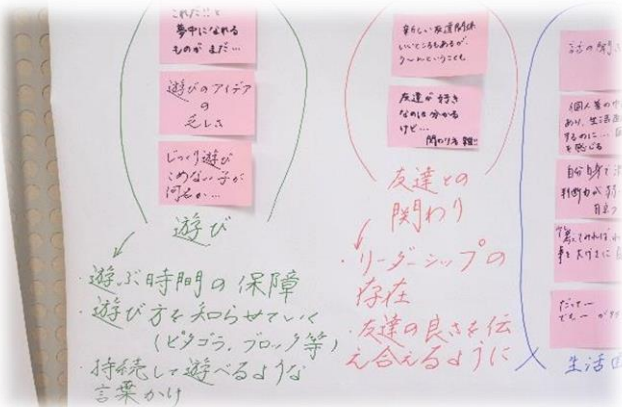 これだ!!と
夢中になれる
ものがまだ…
遊びのアイデア
の
乏しさ
じっくり遊び
こめない子が
何名か…
遊び
・遊ぶ時間の保障
・遊び方を知らせていく
(ピタゴラ、ブロック等)
・持続して遊べるような
言葉かけ
新しい友達関係
いいところもあるが、
う〜んということも
友達が好き
なのは分かる
けど…
関わり方 難!!
友達との
関わり
・リーダーシップの
存在
・友達の良さを伝
え合えるように
話の聞き
個人差の中
あり、生活面
するのに…
を感じる
自分自身で
判断力が
目立つ
事を大げさに
だって〜
でも〜 が
生活面